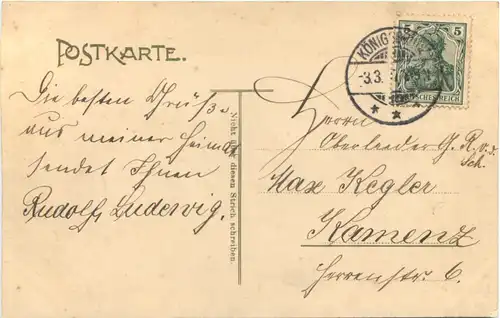 POSTKARTE.
Die besten Grüße
aus meiner Heimat
sendet Ihnen
Rudolf Ludewig.
Nicht über diesen Strich schreiben.
KÖNIGS
-3.3.
5
DEUTSCHES REICH
Herrn
Oberlehrer G. R. v. S.
Sch.
Max Kegler
Kamenz
Herrenstr. 6.